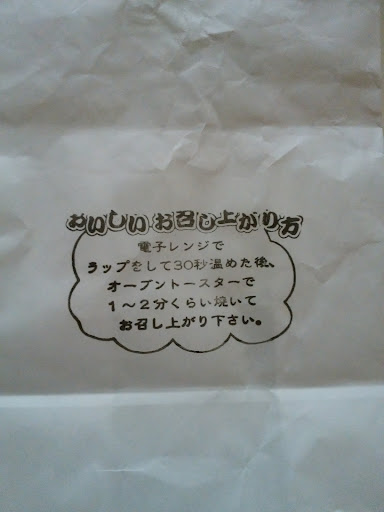 おいしいお召し上がり方
電子レンジで
ラップをして30秒温めた後、
オーブントースターで
1〜2分くらい焼いて
お召し上がり下さい。